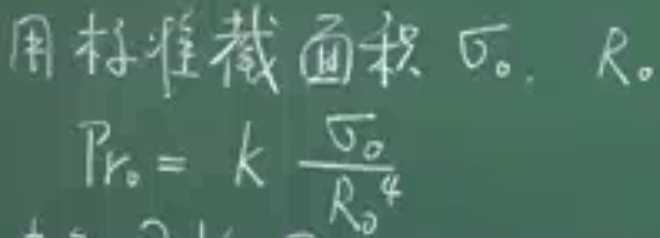 用标准截面积 σ₀. R₀
Pr₀ = k σ₀/R₀⁴